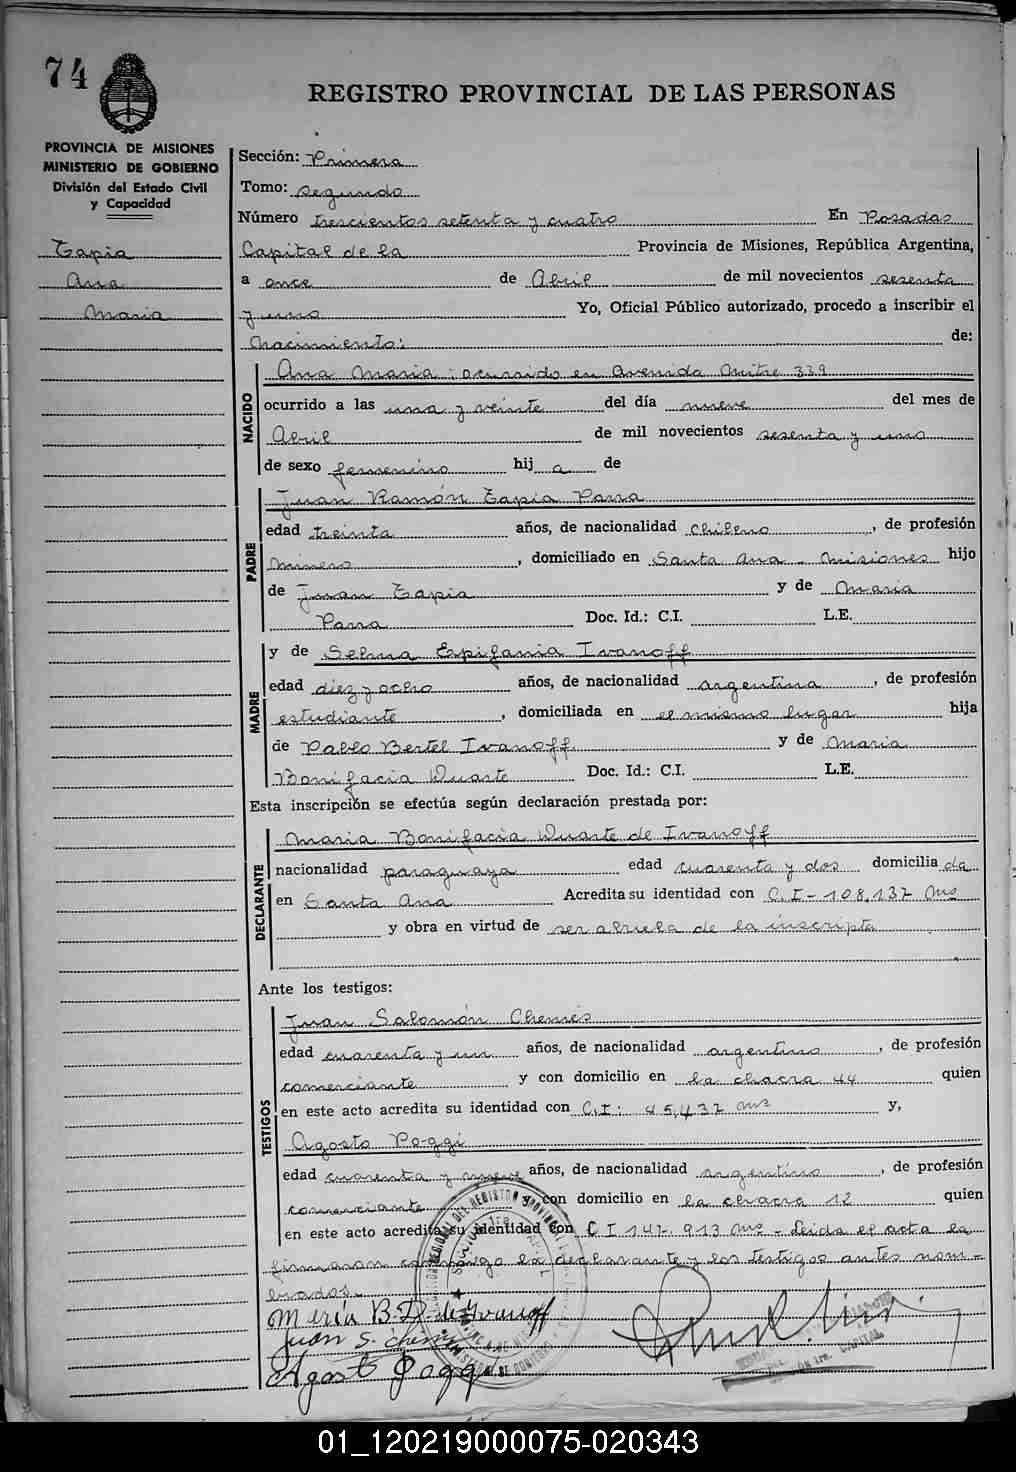 74
REGISTRO PROVINCIAL DE LAS PERSONAS
PROVINCIA DE MISIONES
MINISTERIO DE GOBIERNO
División del Estado Civil
y Capacidad
Tapia
Ana
Maria
Sección: Primera
Tomo: segundo
Número trescientos setenta y cuatro En Posadas
Capital de la Provincia de Misiones, República Argentina,
a once de Abril de mil novecientos sesenta
y uno Yo, Oficial Público autorizado, procedo a inscribir el
Nacimiento: de:
NACIDO
Ana Maria: ocurrido en Avenida Mitre 339
ocurrido a las una y veinte del día nueve del mes de
Abril de mil novecientos sesenta y uno
de sexo femenino hij a de
PADRE
Juan Ramón Tapia Parra
edad treinta años, de nacionalidad chileno, de profesión
minero, domiciliado en Santa Ana - Misiones hijo
de Juan Tapia y de Maria
Parra Doc. Id.: C.I. L.E.
MADRE
y de Selma Epifania Ivanoff
edad diez y ocho años, de nacionalidad argentina, de profesión
estudiante, domiciliada en el mismo lugar hija
de Pablo Bertel Ivanoff y de Maria
Bonifacia Duarte Doc. Id.: C.I. L.E.
Esta inscripción se efectúa según declaración prestada por:
DECLARANTE
Maria Bonifacia Duarte de Ivanoff
nacionalidad paraguaya edad cuarenta y dos domicilia da
en Santa Ana Acredita su identidad con C.I - 108.137 Mns
y obra en virtud de ser abuela de la inscripta
Ante los testigos:
TESTIGOS
Juan Salomón Chemes
edad cuarenta y un años, de nacionalidad argentino, de profesión
comerciante y con domicilio en la chacra 44 quien
en este acto acredita su identidad con C.I: 45.437 Mns y,
Agosto Poggi
edad cuarenta y nueve años, de nacionalidad argentino, de profesión
comerciante y con domicilio en la chacra 12 quien
en este acto acredita su identidad con C I 147.913 Mns - Leida el acta la
firmaron conmigo la declarante y los testigos antes nom-
brados.
Maria B. D. de Ivanoff
Juan S. Chemes
Agosto Poggi
CAPITAL
01_120219000075-020343